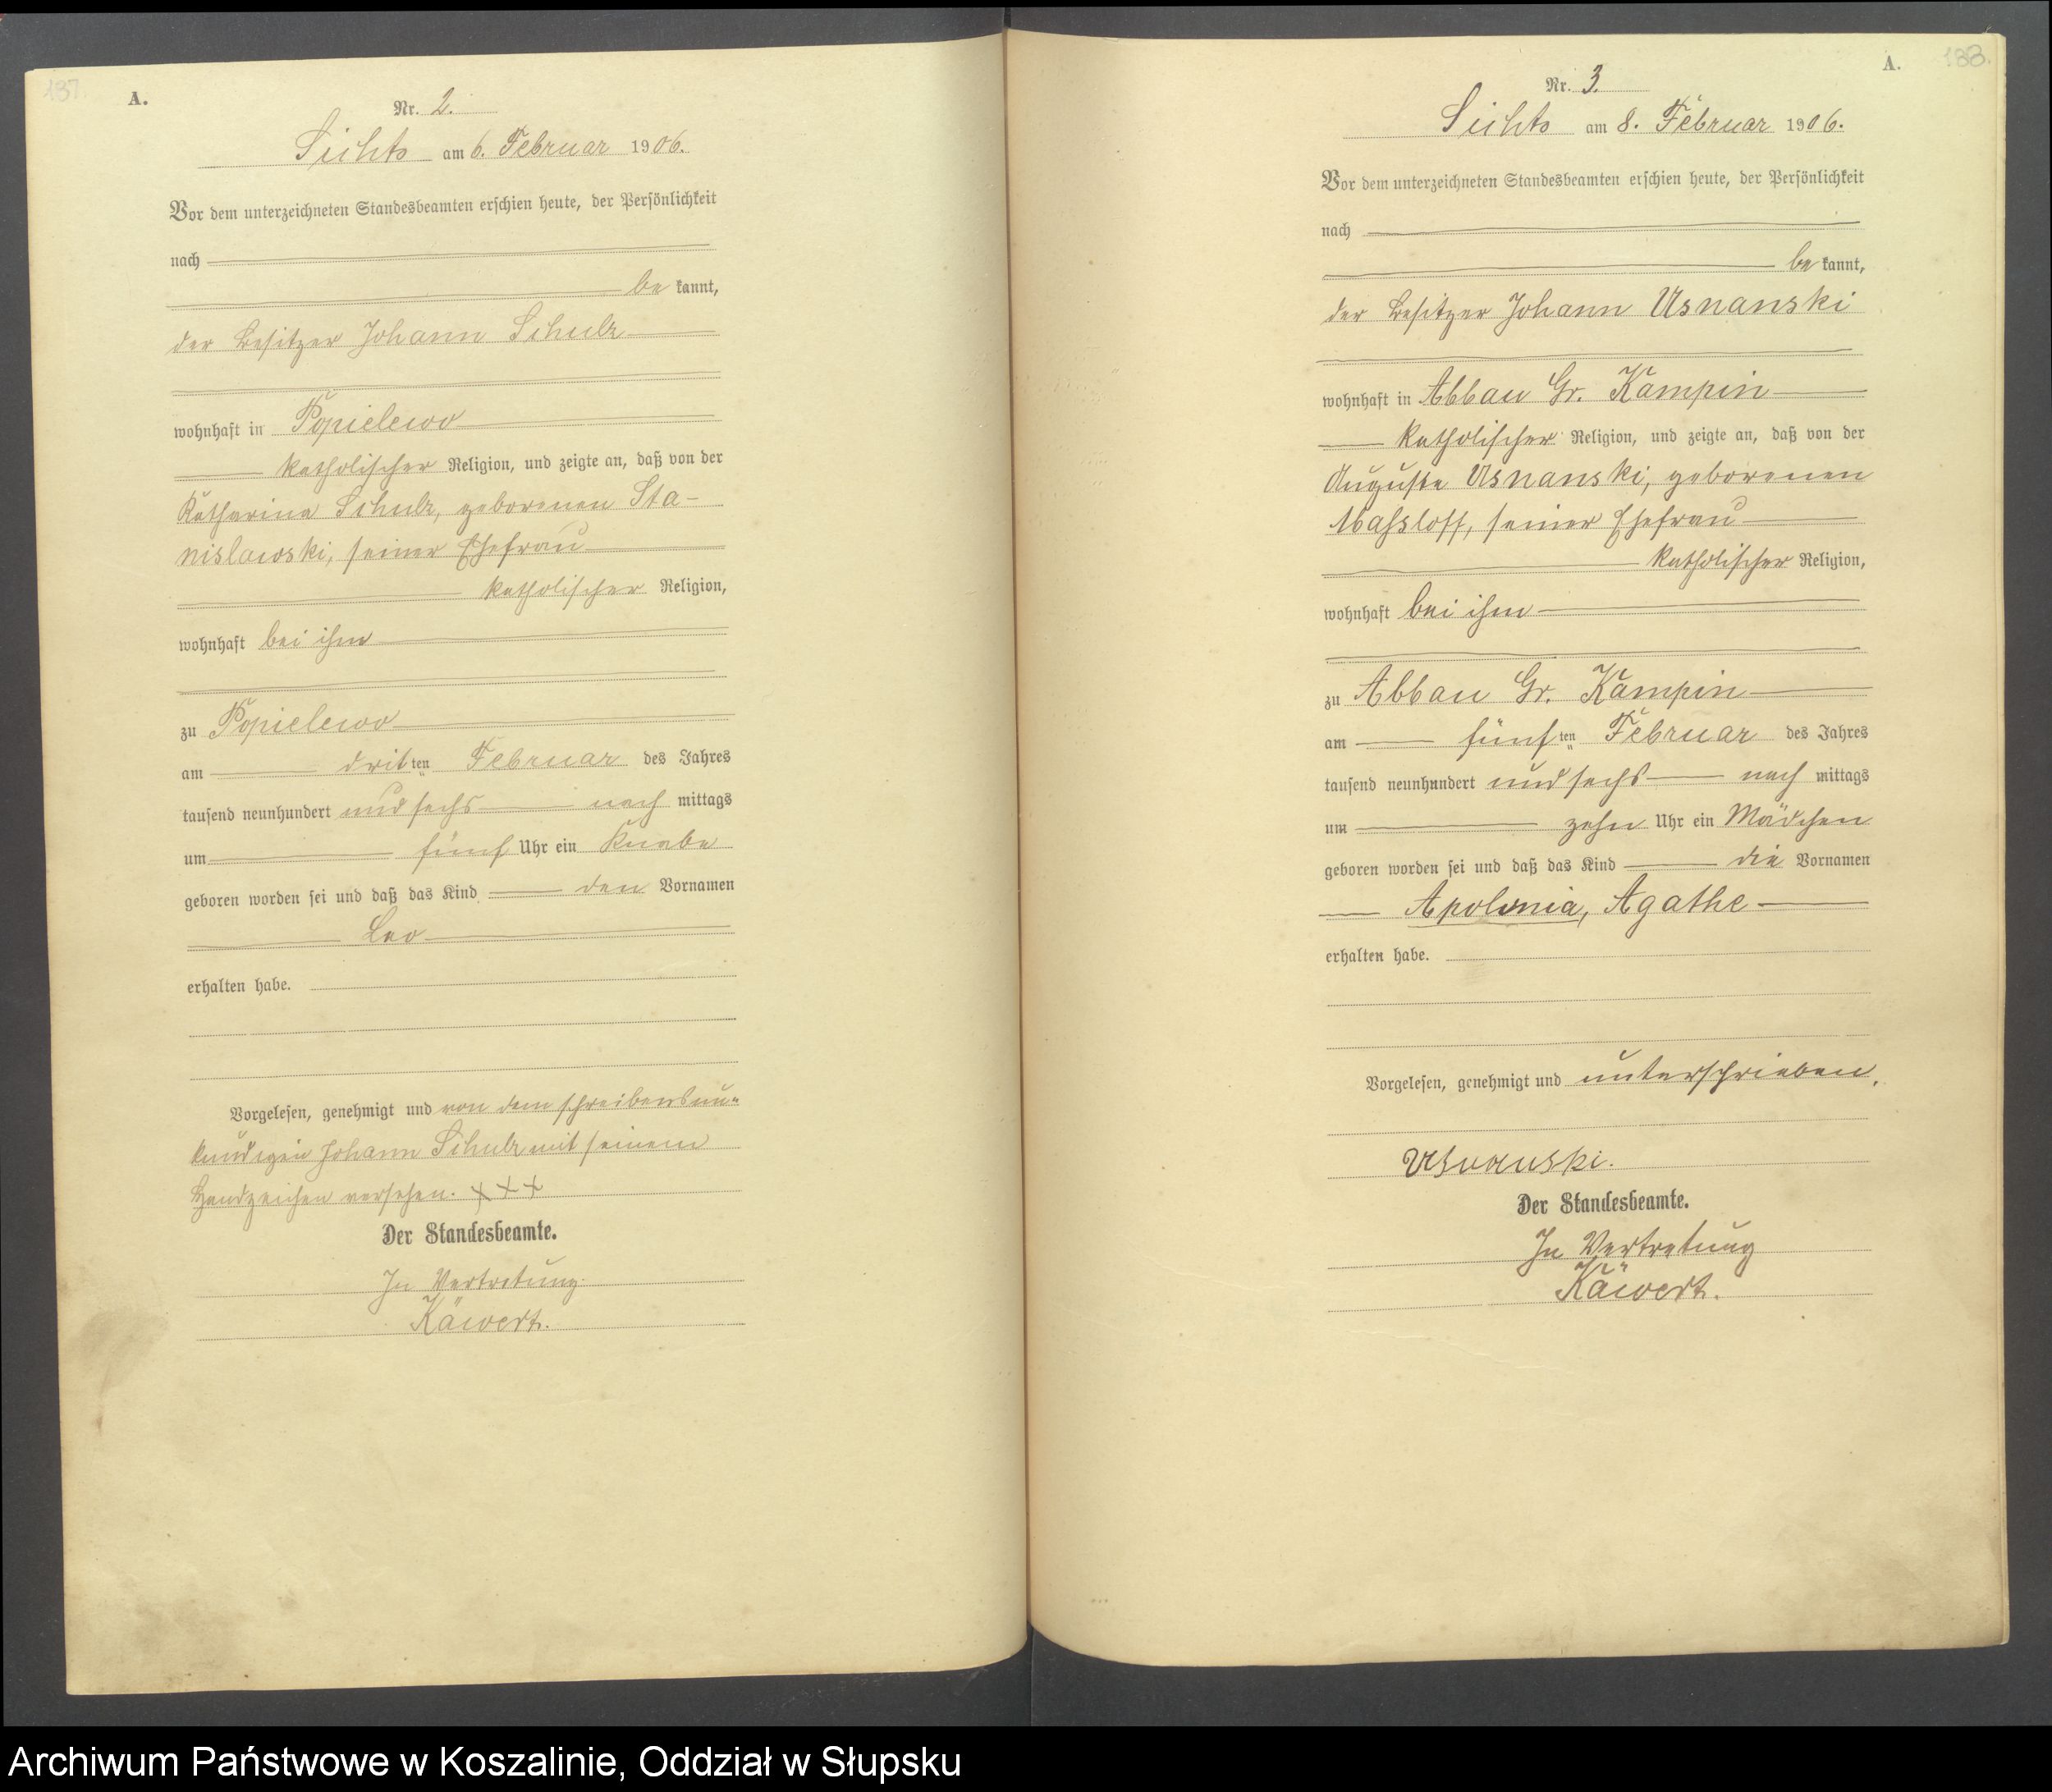 187.
A.
Nr. 2.
Sichts am 6. Februar 1906.
Vor dem unterzeichneten Standesbeamten erschien heute, der Persönlichkeit
nach
be kannt,
der Besitzer Johann Schulz
wohnhaft in Popielewo
katholischer Religion, und zeigte an, daß von der
Katharina Schulz, geborenen Sta-
nislawski, seiner Ehefrau
katholischer Religion,
wohnhaft bei ihm
zu Popielewo
am dritten Februar des Jahres
tausend neunhundert und sechs nach mittags
um fünf Uhr ein Knabe
geboren worden sei und daß das Kind den Vornamen
Leo
erhalten habe.
Vorgelesen, genehmigt und von dem schreibensun-
kundigen Johann Schulz mit seinem
Handzeichen versehen. +++
Der Standesbeamte.
In Vertretung.
Käwert.
A.
188.
Nr. 3.
Sichts am 8. Februar 1906.
Vor dem unterzeichneten Standesbeamten erschien heute, der Persönlichkeit
nach
be kannt,
der Besitzer Johann Usnanski
wohnhaft in Abbau Gr. Kampin
katholischer Religion, und zeigte an, daß von der
Auguste Usnanski, geborenen
seiner Ehefrau
katholischer Religion,
wohnhaft bei ihm
zu Abbau Gr. Kampin
am fünften Februar des Jahres
tausend neunhundert und sechs nach mittags
um zehn Uhr ein Mädchen
geboren worden sei und daß das Kind die Vornamen
Apolonia, Agathe
erhalten habe.
Vorgelesen, genehmigt und unterschrieben.
Usnanski.
Der Standesbeamte.
In Vertretung
Käwert.
Archiwum Państwowe w Koszalinie, Oddział w Słupsku